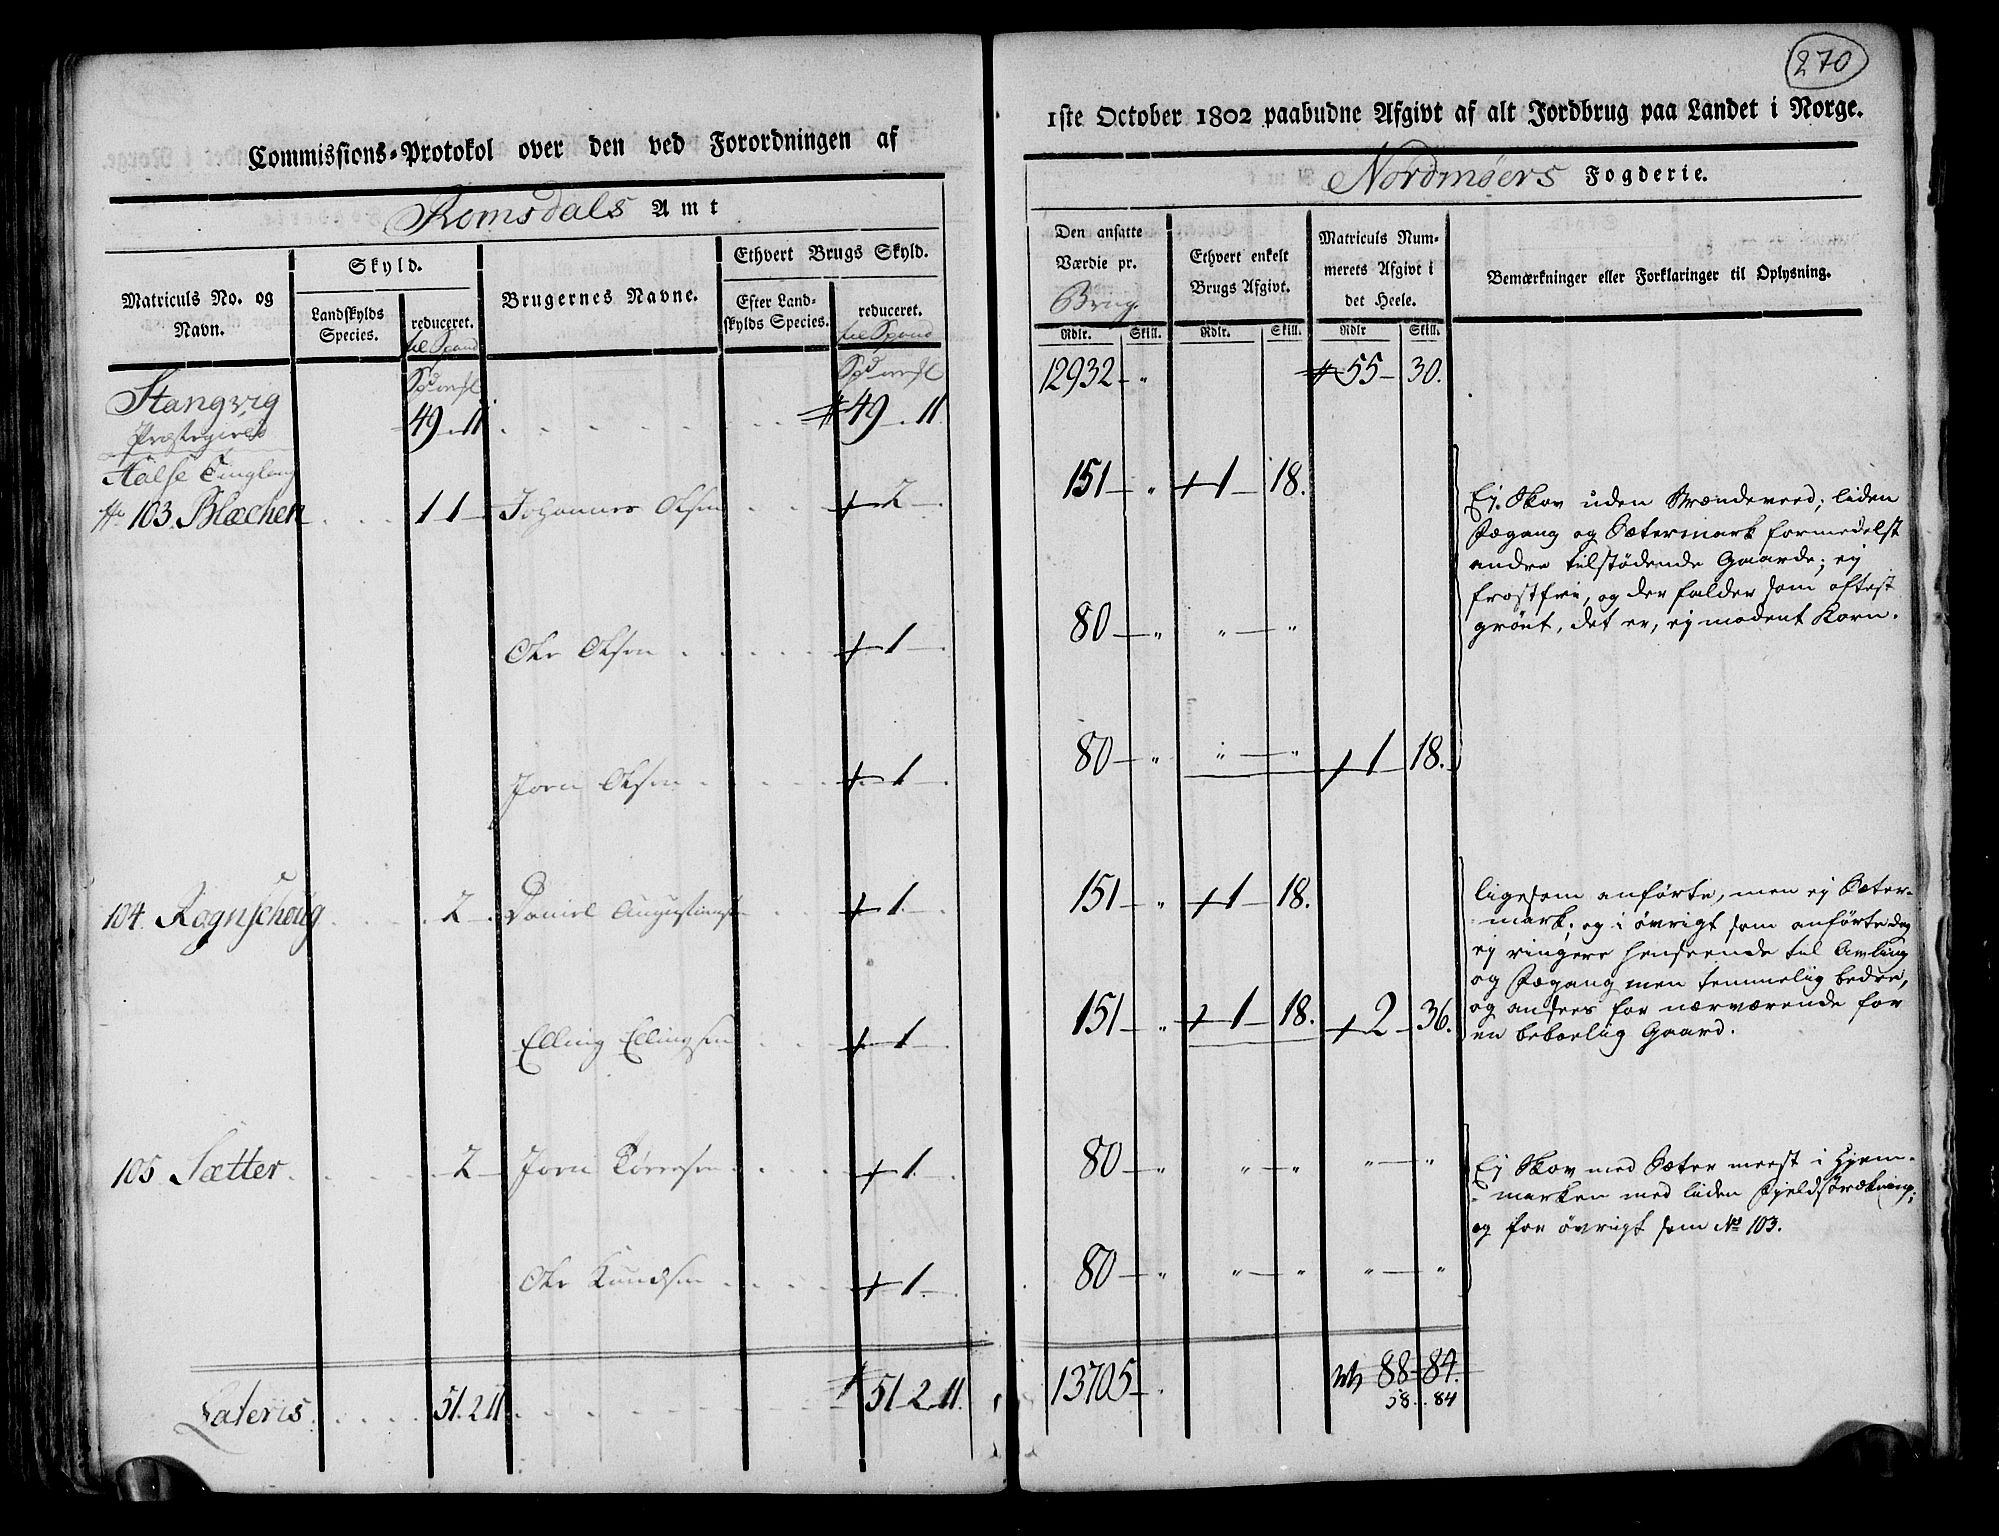 270
Commissions-Protokol over den ved Forordningen af
1ste October 1802 paabudne Afgivt af alt Jordbrug paa Landet i Norge.
Romsdals Amt
Nordmøers Fogderie.
Matriculs No. og Navn.
Skyld.
Landskylds Species.
reduceret.
til Spand
Brugernes Navne.
Ethvert Brugs Skyld.
Efter Land-
skylds Species.
reduceret.
til Spand
Den ansatte
Værdie pr.
Brug.
Rdlr. Skill.
Ethvert enkelt
Brugs Afgivt.
Rdlr. Skill.
Matriculs Num-
merets Afgivt i
det Heele.
Rdlr Skill.
Bemærkninger eller Forklaringer til Oplysning.
Stangvig 49 . 11 49 . 11 12932 - " 55 - 30.
Præstegield
Halse Tinglaug
No 103. Blæchen 1 1 Johannes Olsen 2 151 - " 1 - 18.
Ej Skov uden Brændeveed; liden
Fægang og Sætermark formedelst
andre tilstødende Gaarde; ej
frostfri, og der falder som oftest
grönt, det er, ej modent Korn.
Ole Olsen 1 80 - " " - "
Jorn Olsen 1 80 - " " - " 1 18.
104. Rognschoug 2 Daniel Augustinsen 1 151 - " 1 - 18.
ligesom anførte, men ej Sæter-
mark; og i øvrigt som anførte dog
ej ringere henseende til Avling
og Fægang men temmelig bedre,
og ansees for nærværende for
en beboelig Gaard.
Elling Ellingsen 1 151 - " 1 - 18. 2 - 36.
105 Sætter 2 Jorn Tørresen 1 80 - " " - " " - "
Ej Skov med Sæter meest i Hjem-
marken med liden Fjeldstrækning;
og for øvrigt som No 103.
Ole Knudsen 1 80 - " " - " " - "
Lateris 51. 2 11 51 - 2 . 11. 13705 - . 88 - 84.
58 . 84